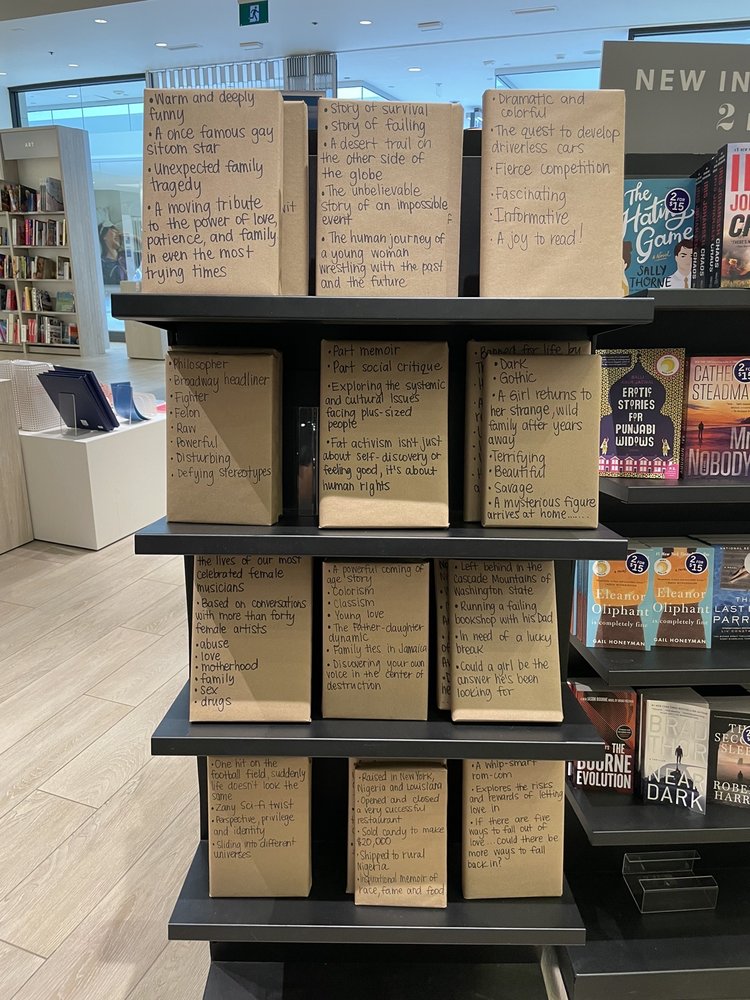 • Warm and deeply
funny
• A once famous gay
sitcom star
• Unexpected family
tragedy
• A moving tribute
to the power of love,
patience, and family
in even the most
trying times
Story of survival
• Story of failing
• A desert trail on
the other side of
the globe
• The unbelievable
story of an impossible
event
• The human journey of
a young woman
wrestling with the past
and the future
• Dramatic and
colorful
• The quest to develop
driverless cars
• Fierce competition
• Fascinating
• Informative
• A joy to read!
Philosopher
• Broadway headliner
• Fighter
• Felon
• Raw
• Powerful
• Disturbing
• Defying stereotypes
• Part memoir
• Part social critique
• Exploring the systemic
and cultural issues
facing plus-sized
people
• Fat activism isn't just
about self-discovery or
feeling good, it's about
human rights
Banned for life by
• Dark
• Gothic
• A Girl returns to
her strange, wild
family after years
away
• Terrifying
• Beautiful
• Savage
• A mysterious figure
arrives at home........
the lives of our most
celebrated female
musicians
• Based on conversations
with more than forty
female artists
• abuse
• love
• motherhood
• family
• sex
• drugs
• A powerful coming of
age story
• Colorism
• Classism
• Young love
• The Father-daughter
dynamic
• Family ties in Jamaica
• Discovering your own
voice in the center of
destruction
• Left behind in the
Cascade Mountains of
Washington State
• Running a failing
bookshop with his Dad
• In need of a lucky
break
• Could a girl be the
answer he's been
looking for
• One hit on the
football field, suddenly
life doesn't look the
same
• Zany Sci-fi twist
• Perspective, privilege
and identity
• Sliding into different
universes
• Raised in New York,
Nigeria and Louisiana
• Opened and closed
a very successful
restaurant
• Sold candy to make
$20,000
• Shipped to rural
Nigeria
• Inspirational memoir of
race, fame and food
• A whip-smart
rom-com
• Explores the risks
and rewards of letting
love in
• If there are five
ways to fall out of
love...could there be
more ways to fall
back in?
ART
NEW IN
2
The
Hating
Game
A Novel
SALLY
THORNE
2 FOR
$15
CHAOS
CHAOS
CHAOS
EROTIC
STORIES
FOR
PUNJABI
WIDOWS
CATHE
STEADMA
NOBODY
Eleanor
Oliphant
is completely fine
GAIL HONEYMAN
2 FOR
$15
Eleanor
Oliphant
is completely fine
GAIL HONEYMAN
2 FOR
$15
THE
BOURNE
EVOLUTION
BRAD
THOR
NEAR
DARK